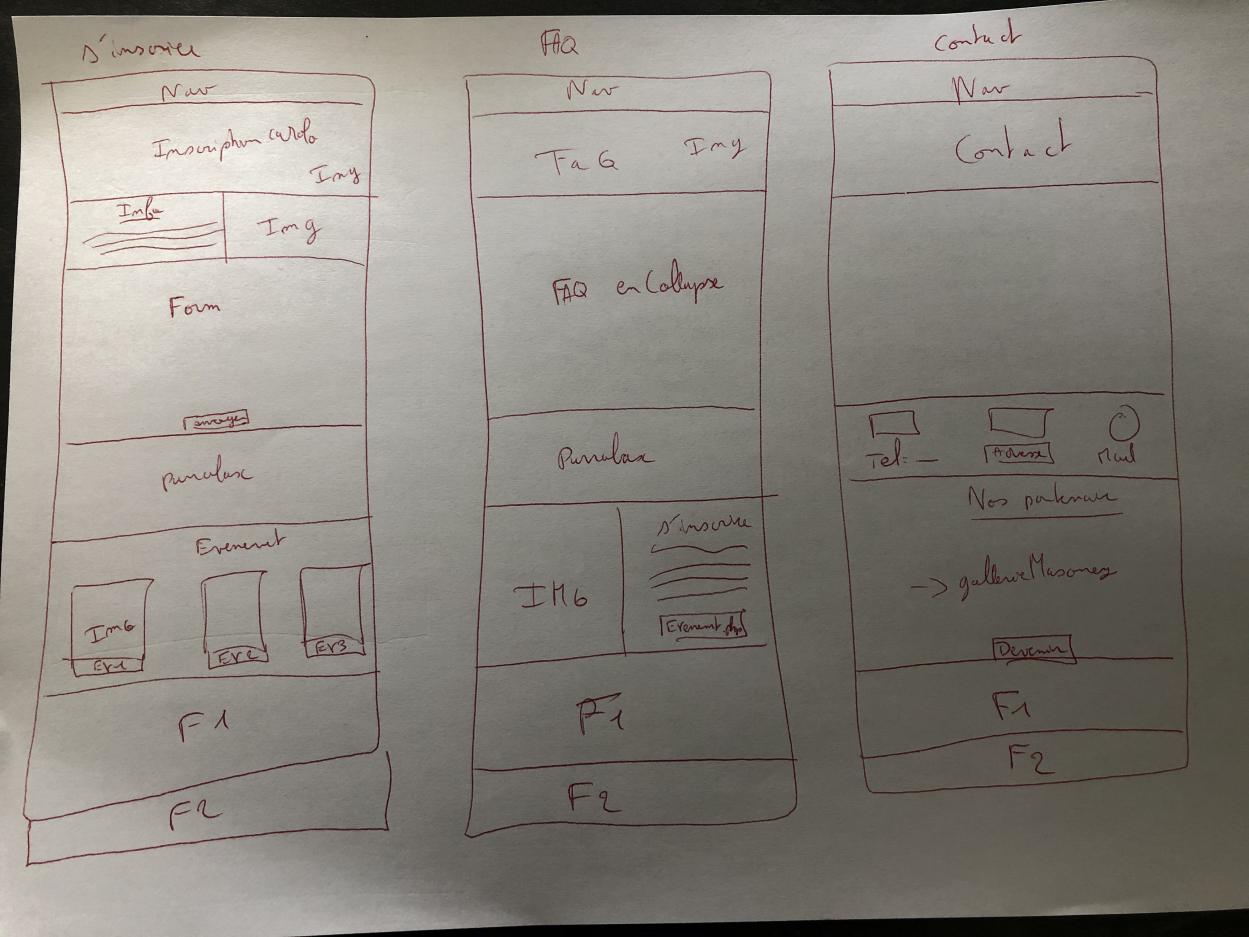 S'inscrire
Nav
Inscription Carolo
Img
Info
Img
Form
envoyer
parralax
Evenement
IMG
Ev1
Ev2
Ev3
F1
F2
FAQ
Nav
FaQ
Img
FAQ en Collapse
Parralax
IMG
S'inscrire
Evenement.php
F1
F2
Contact
Nav
Contact
Tel: _
Adresse
Mail
Nos partenaire
-> gallerie Masonry
Devenir
F1
F2